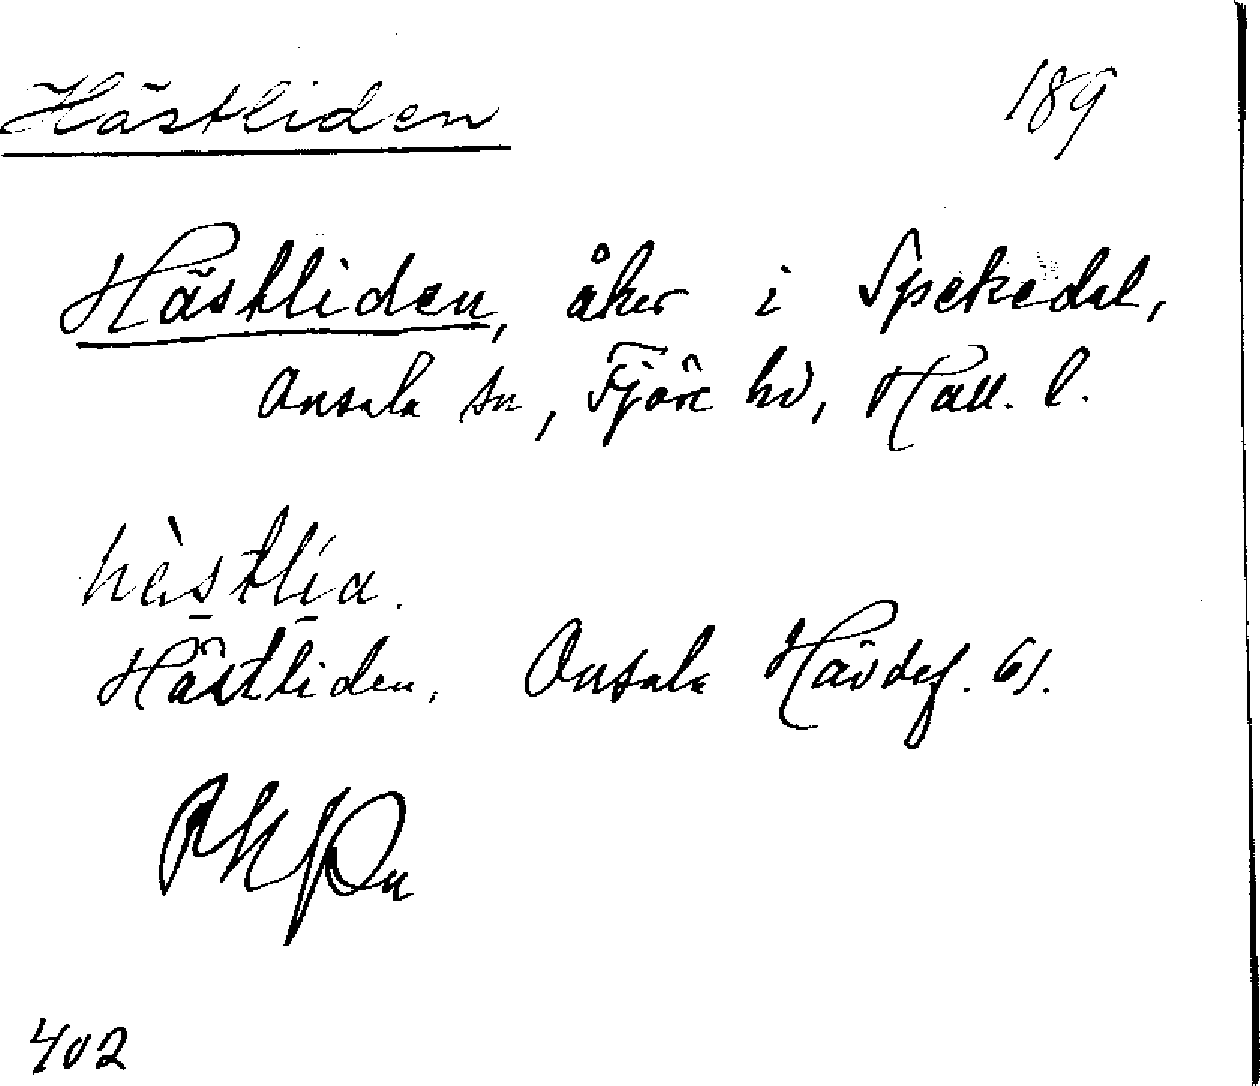 Hästliden 189
Hästliden, åker i Spekedal,
Onsala sn, Fjäre hd, Hall. l.
hèstlía.
Hästliden. Onsala Hävdef. 61.
402